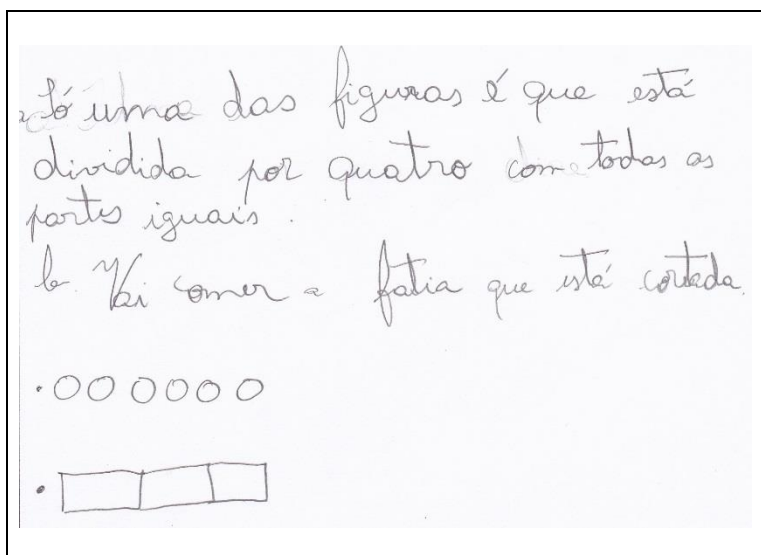 a Só uma das figuras é que está
dividida por quatro com todas as
partes iguais.
b. Vai comer a fatia que está cortada.